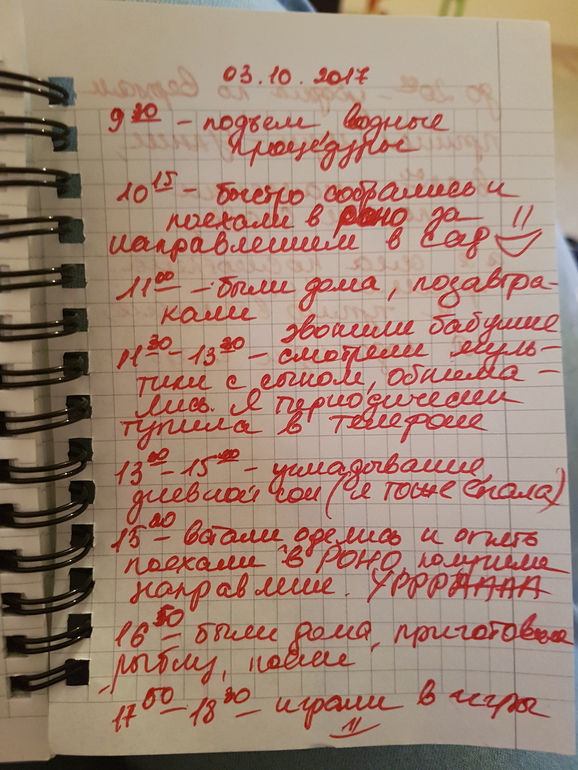 03.10.2017
9 30 – подъем водные
процедуры
10 15 – быстро собрались и
поехали в РОНО за
направлением в сад
11 00 – были дома, позавтра-
кали
звонили бабушке
11 30 – 13 30 – смотрели муль-
тики с сыном, обнима-
лись. Я периодически
тупила в телефоне
13 – 15 – укладывание,
дневной сон (я тоже спала)
15 – встали оделись и опять
поехали в РОНО, получили
направление. УРРРАААА
16 50 – были дома, приготовили
рыбку, поели
17 50 – 18 30 – играли в игры